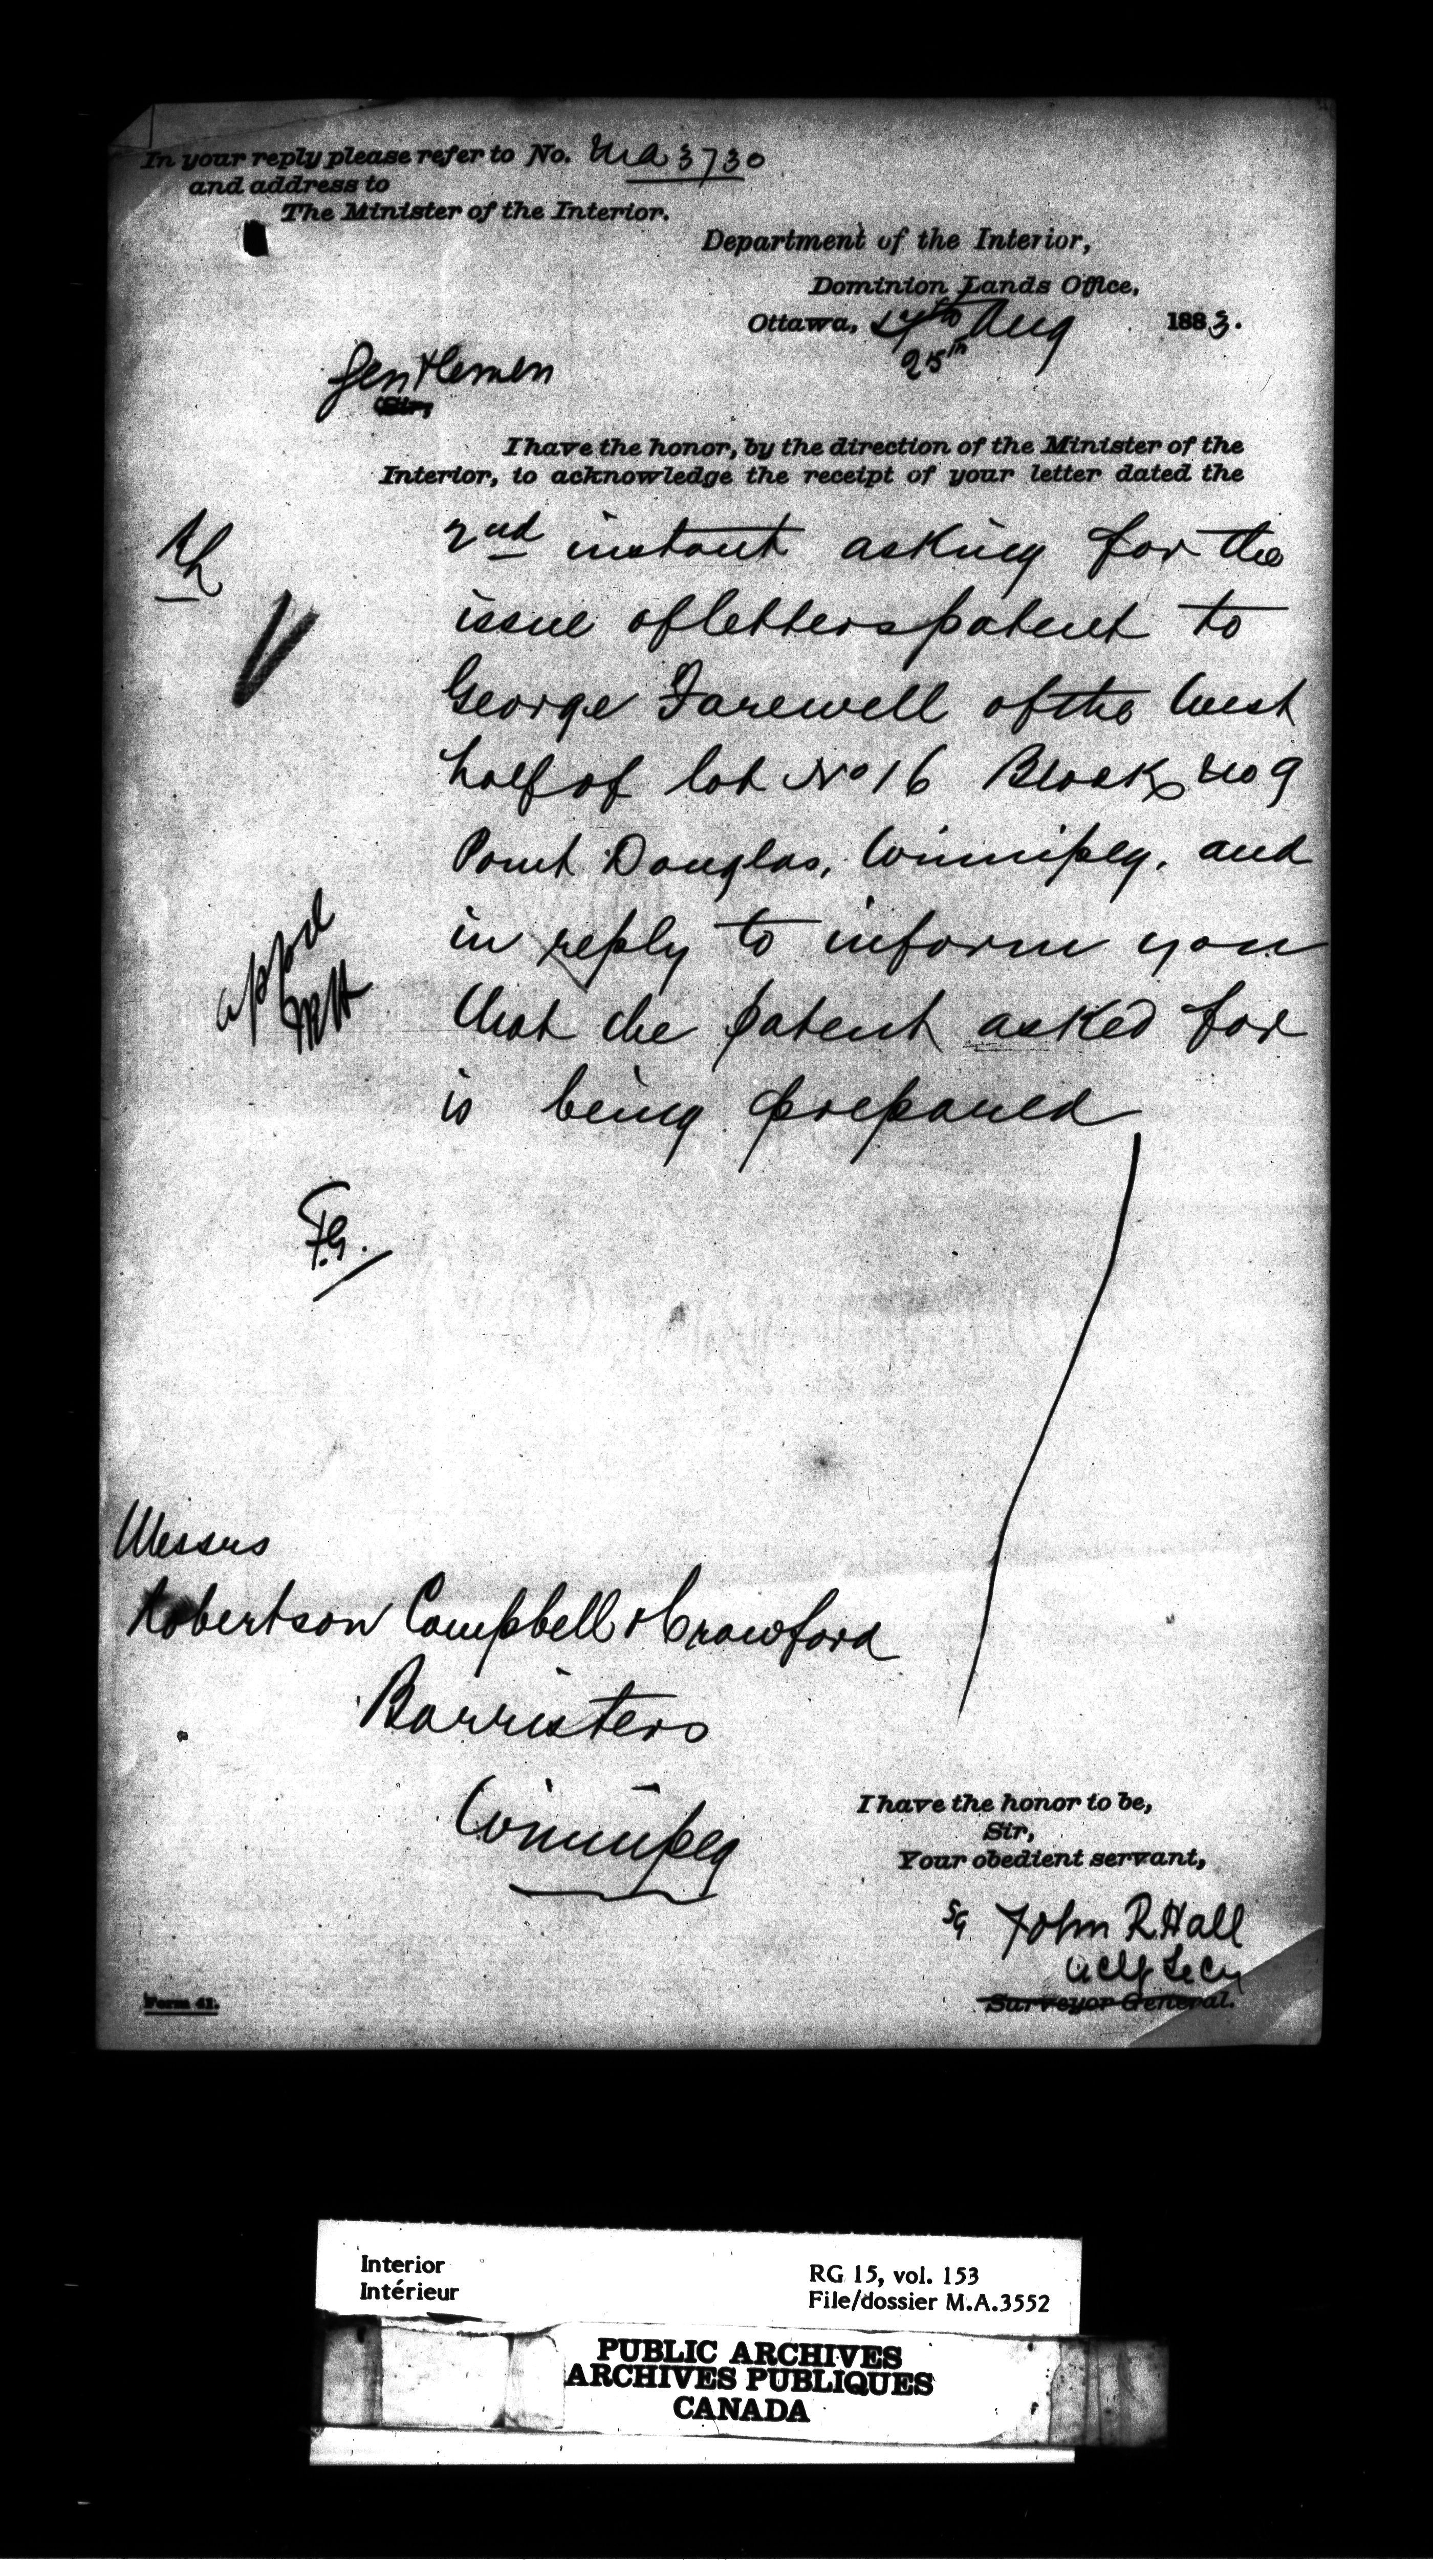 In your reply please refer to No. MA 3730
and address to
The Minister of the Interior.
Department of the Interior,
Dominion Lands Office,
Ottawa, 17th Aug 1883.
25th
Gentlemen
Sir,
I have the honor, by the direction of the Minister of the
Interior, to acknowledge the receipt of your letter dated the
2nd instant asking for the
issue of letters patent to
George Farewell of the West
half of lot No 16 Block no 9
Point Douglas, Winnipeg, and
in reply to inform you
that the patent asked for
is being prepared
appd
F.G.
Messrs
Robertson Campbell & Crawford
Barristers
Winnipeg
I have the honor to be,
Sir,
Your obedient servant,
Sg John R. Hall
Actg Secy
Surveyor General.
Form 41.
Interior
Intérieur
RG 15, vol. 153
File/dossier M.A.3552
PUBLIC ARCHIVES
ARCHIVES PUBLIQUES
CANADA